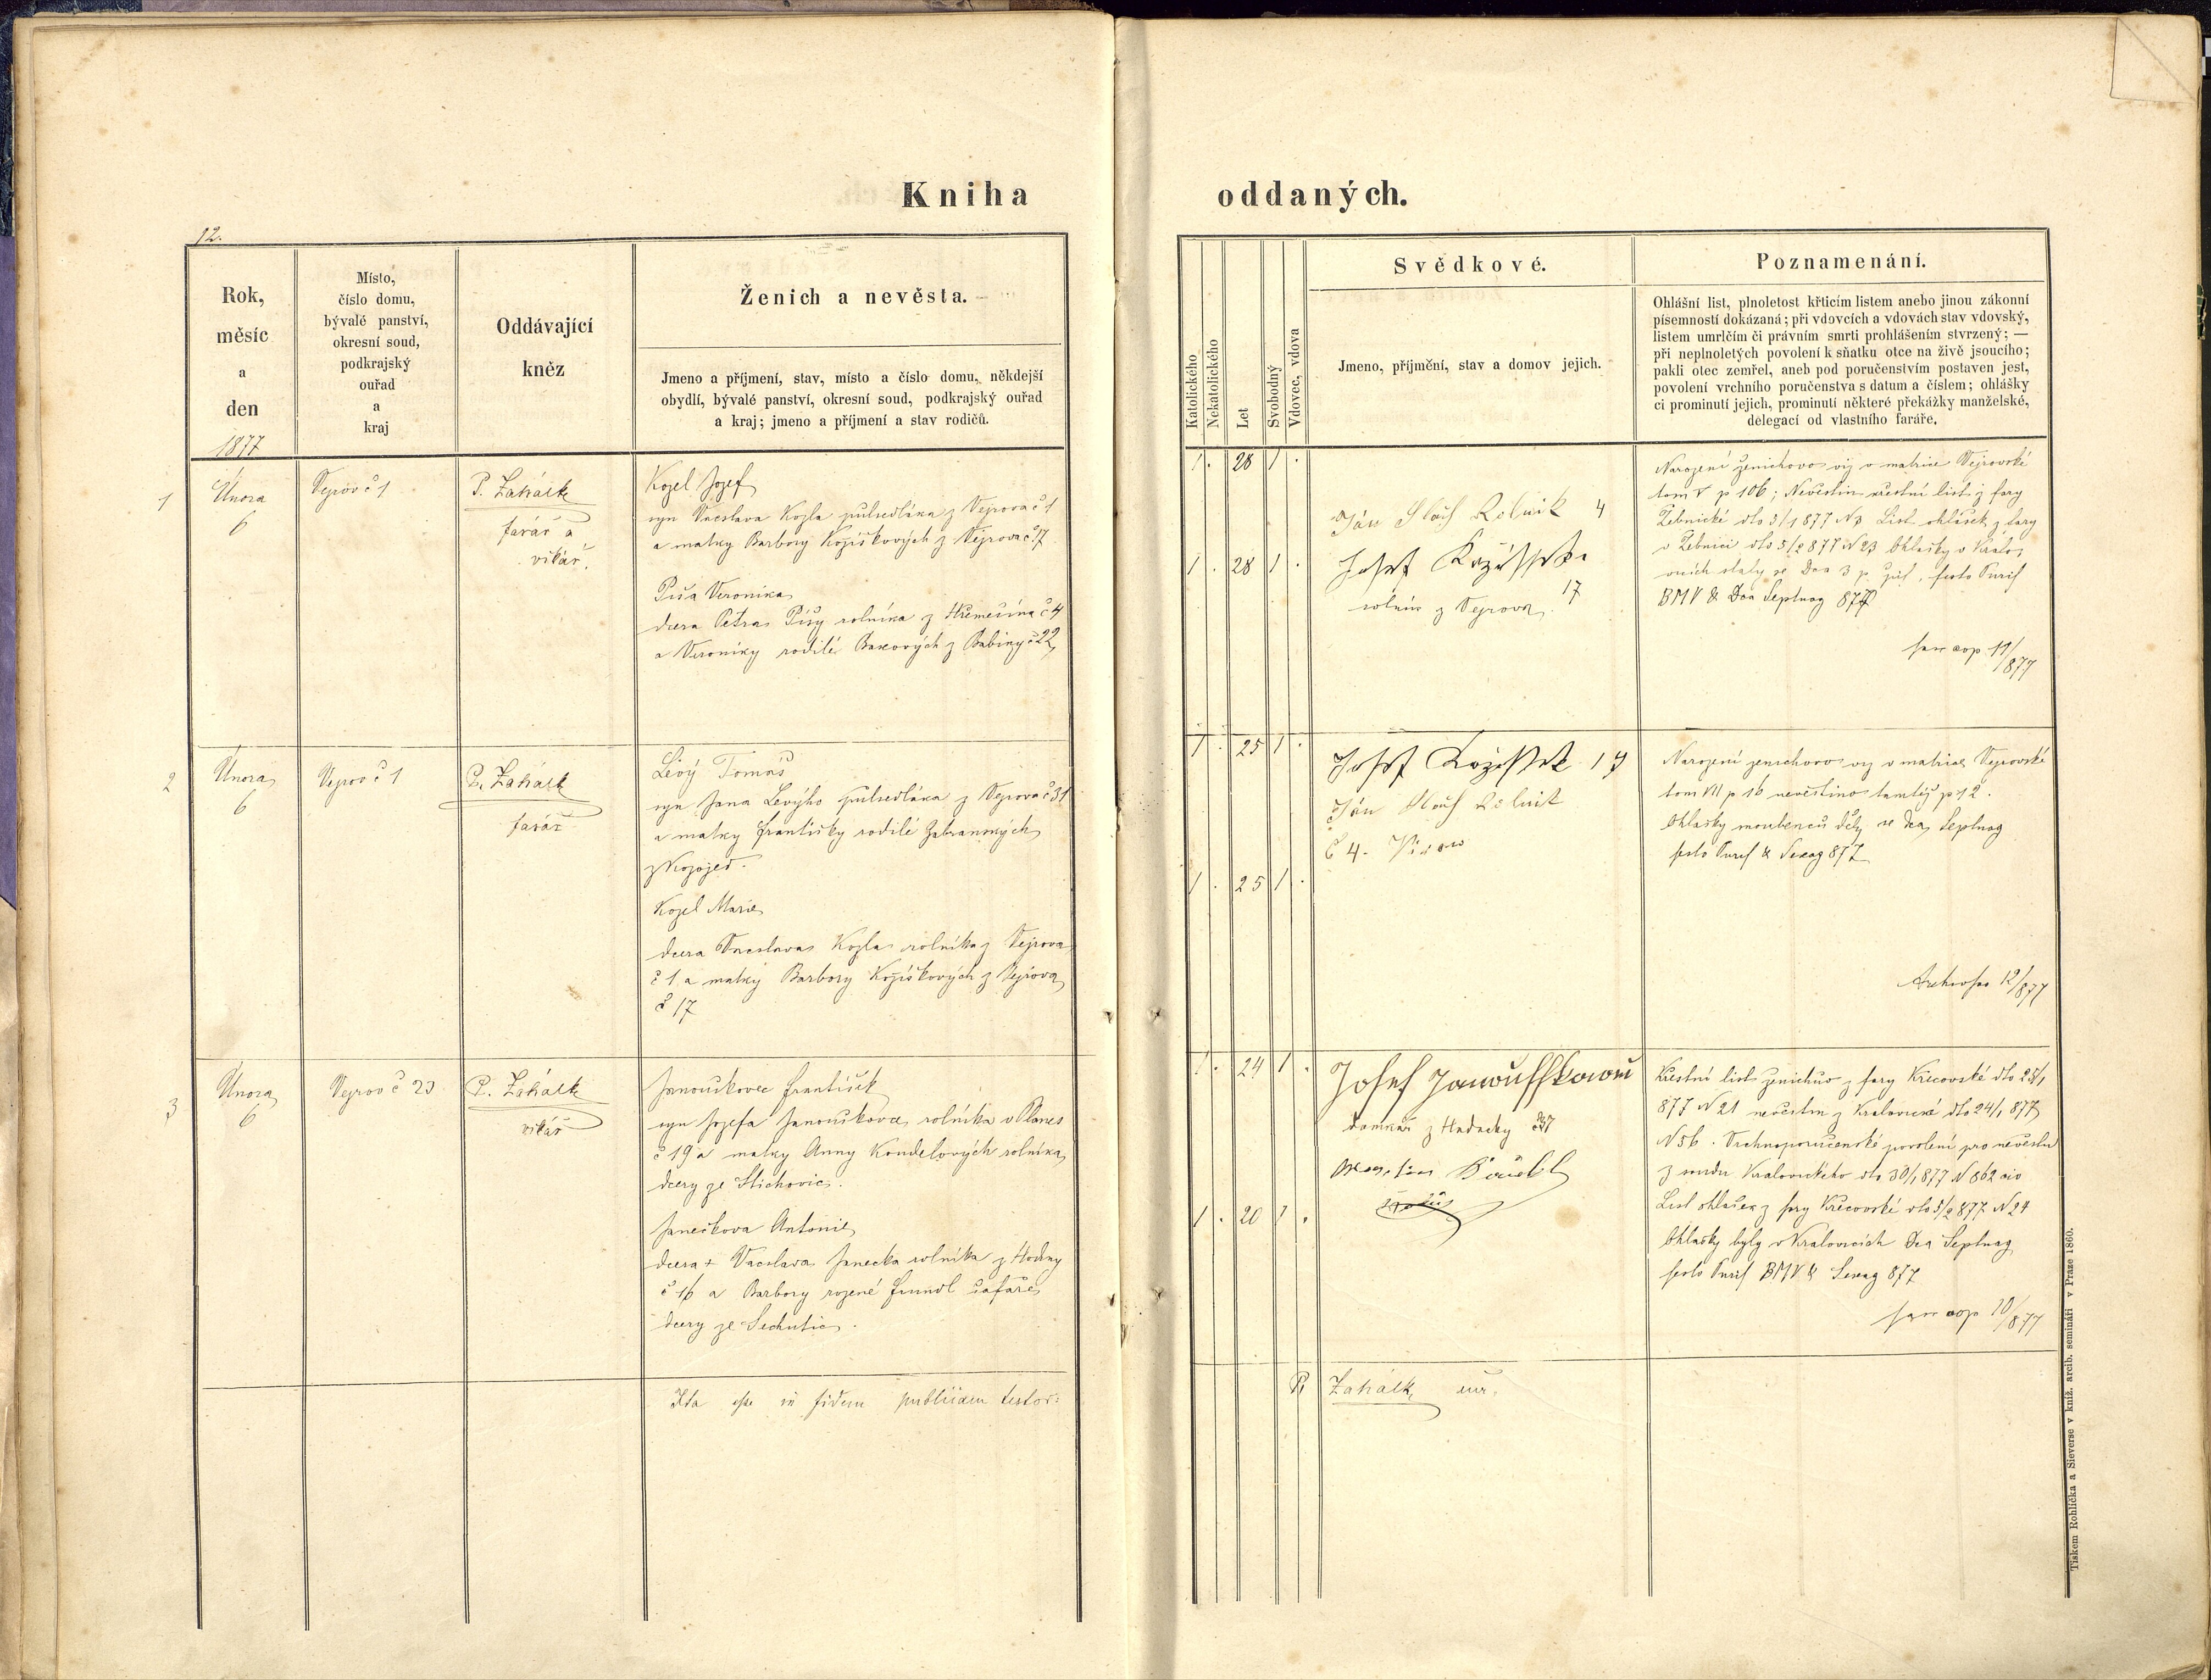 Kniha oddaných.
12.
Rok,
měsíc
a
den
1877
Místo,
číslo domu,
bývalé panství,
okresní soud,
podkrajský
ouřad
a
kraj
Oddávající
kněz
Ženich a nevěsta.
Jmeno a příjmení, stav, místo a číslo domu, někdejší
obydlí, bývalé panství, okresní soud, podkrajský ouřad
a kraj; jmeno a příjmení a stav rodičů.
Katolického
Nekatolického
Let
Svobodný
Vdovec, vdova
Svědkové.
Jmeno, příjmění, stav a domov jejich.
Poznamenání.
Ohlášní list, plnoletost křticím listem anebo jinou zákonní
písemností dokázaná; při vdovcích a vdovách stav vdovský,
listem umrlčím či právním smrti prohlášením stvrzený; —
při neplnoletých povolení k sňatku otce na živě jsoucího;
pakli otec zemřel, aneb pod poručenstvím postaven jest,
povolení vrchního poručenstva s datum a číslem; ohlášky
ci prominutí jejich, prominutí některé překážky manželské,
delegací od vlastního faráře.
1
Února
6
Vejrov č 1
P. Zahálk
farář a
vikář.
Kozel Jozef
syn Vacslava Kozla pulsedláka z Vejrova č 1
a matky Barbory Kožíškových z Vejrova č 17
Píša Veronika
dcera Petra Píšy rolníka z Hřemešína č 4
a Veroniky rodilé z Babiny č 22
1 . 28 1 .
1 . 28 1 .
Ján Rolnik 4
Josef
rolník z Vejrova 17
Narození ženichovo viz v matrice Vejrovské
tom V p 106; Nevěstin křestní list z fary
Žebnické dto 3/1 877 N 3 List ohlášek z fary
v Žebnici dto 5/2 877 N 23 Ohlášky v Kralo
BMV & Dca Septuag 877
11/877
2
Února
6
Vejrov č 1
P. Zahálk
farář
Levý Tomáš
syn Jana Levýho pulsedláka z Vejrova č 31
a matky Františky rodilé
z Kozojed.
Kozel Marie
dcera Vacslava Kozla rolníka z Vejrova
č 1 a matky Barbory Kožíškových z Vejrova
č 17
1 . 25 1 .
1 . 25 1 .
Josef 17
Ján Rolnik
č 4.
Narození ženichovo viz v matrice Vejrovské
tom VII p 16 nevěstino tamtéž p 12.
Ohlášky snoubenců dály se Dca Septuag
festo Purif & Sexag 877
12/877
3
Února
6
Vejrov č 23
P. Zahálk
vikář
Janouškovec František
syn Jozefa Janouškovce rolníka v Plances
č 19 a matky Anny Kondelových rolníka
dcery ze Hlichovic.
Janečkova Antonie
dcera + Vacslava Janečka rolníka z Hodiny
č 16 a Barbory rozené šafáře
dcery ze Sechutic.
1 . 24 1 .
1 . 20 1 .
Josef Janouškowec
domkář z Hadačky č 37
Křestní list ženichův z fary Křečovské dto 23/1
877 N 21 nevěstin z Kralovické dto 24/1 877
N 56. Vrchnoporučenské povolení pro nevěstu
z soudu Kralovického dto 30/1 877 N 862 civ
List ohlášek z fary Křečovské dto 5/2 877 N 24
Ohlášky byly v Kralovicích Dca Septuag
festo Purif BMV & Sexag 877
10/877
Ita esse in fidem publicam testor:
P. Zahálk
Tiskem Rohlíčka a Sieverse v kníž. arcib. semináři v Praze 1860.